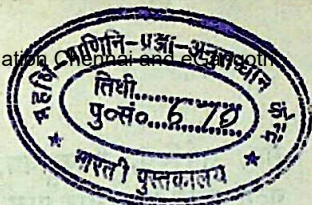 ation Chennai and eGangotri
महर्षि-पाणिनि-प्रज्ञा-अनुसन्धान केन्द्र
तिथी..............
पु०सं० 6 10
★ भारती पुस्तकालय ★